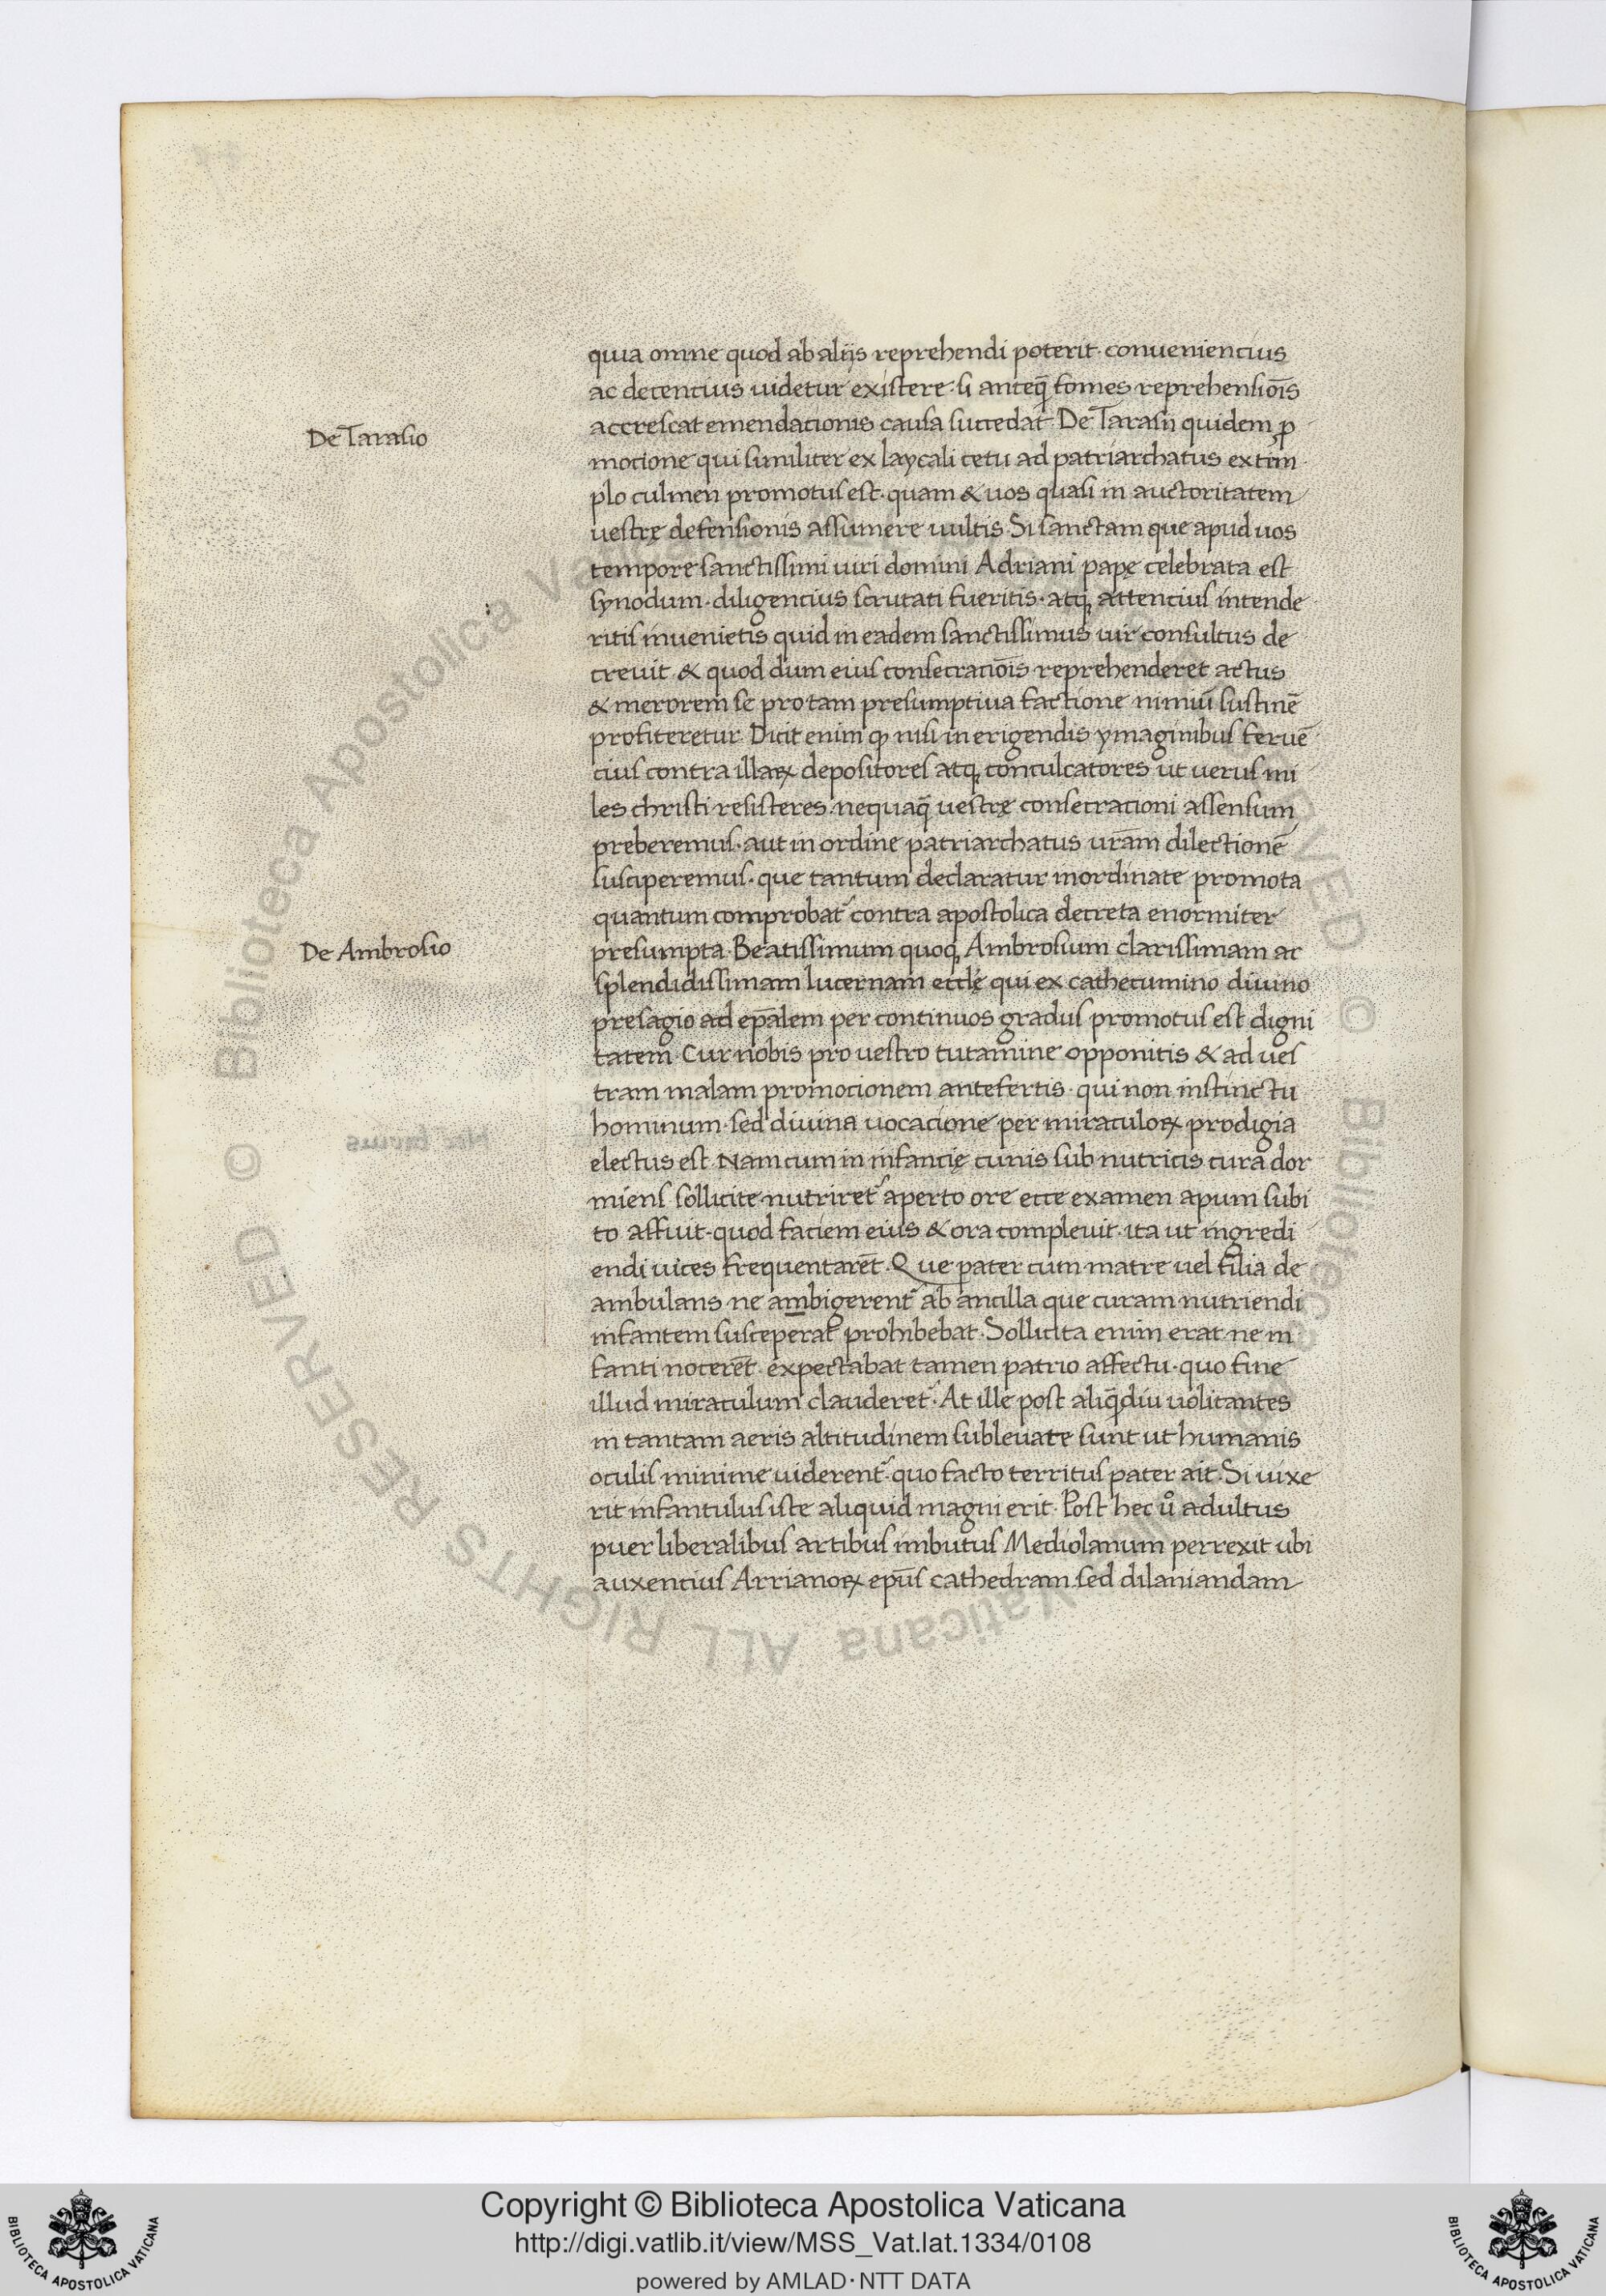 quia omne quod ab aliis reprehendi poterit· conueniencius
ac decencius uidetur existere· si anteq̄ fomes reprehensiōis
accrescat emendacionis causa succedat· De Tarasii quidem ꝓ
De Tarasio
mocione qui similiter ex laycali cetu ad patriarchatus extim
plo culmen promotus est· quam & uos quasi in auctoritatem
uestrę defensionis assumere uultis· Si sanctam que apud uos
tempore sanctissimi uiri domini Adriani papę celebrata est
synodum· diligencius scrutati fueritis· atq; attencius intende
ritis inuenietis quid in eadem sanctissimus uir consultus de
creuit· & quod dum eius consecraciōis reprehenderet actus
& merorem se pro tam presumptiua factione nimiū sustinē
profiteretur· Dicit enim ꝙ nisi in erigendis ymaginibus feruē
cius contra illaꝝ depositores atq; conculcatores ut uerus mi
les christi resisteres· nequaq̄ uestrę consecracioni assensum
preberemus· aut in ordine patriarchatus ur̄am dilectionē
susciperemus· que tantum declaratur inordinate promota
quantum comprobat᷑ contra apostolica decreta enormiter
presumpta· Beatissimum quoq; Ambrosium clarissimam ac
De Ambrosio
splendidissimam lucernam eccl̄ę qui ex cathecumino diuino
presagio ad ep̄alem per continuos gradus promotus est digni
tatem· Cur nobis pro uestro tutamine opponitis & ad ues
tram malam promocionem antefertis· qui non instinctu
hominum· sed diuina uocacione per miraculoꝝ prodigia
electus est· Nam cum in infancię cunis sub nutricis cura dor
miens sollicite nutriret᷑ aperto ore ecce examen apum subi
to affuit· quod faciem eius & ora compleuit· ita ut ingredi
endi uices frequentarēt· Que pater cum matre uel filia de
ambulans ne ambigerent᷑ ab ancilla que curam nutriendi
infantem susceperat᷑ prohibebat· Sollicita enim erat ne in
fanti nocerēt· expectabat tamen patrio affectu· quo fine
illud miraculum clauderet᷑· At ille post aliq̄diu uolitantes
in tantam aeris altitudinem subleuate sunt ut humanis
oculis minime uiderent᷑ quo facto territus pater ait· Si uixe
rit infantulus iste aliquid magni erit· Post hec uͦ adultus
puer liberalibus artibus imbutus Mediolanum perrexit ubi
auxencius Arrianoꝝ ep̄us cathedram sed dilaniandam
Copyright © Biblioteca Apostolica Vaticana
http://digi.vatlib.it/view/MSS_Vat.lat.1334/0108
powered by AMLAD·NTT DATA
BIBLIOTECA APOSTOLICA VATICANA
BIBLIOTECA APOSTOLICA VATICANA
© Biblioteca Apostolica Vaticana ALL RIGHTS RESERVED